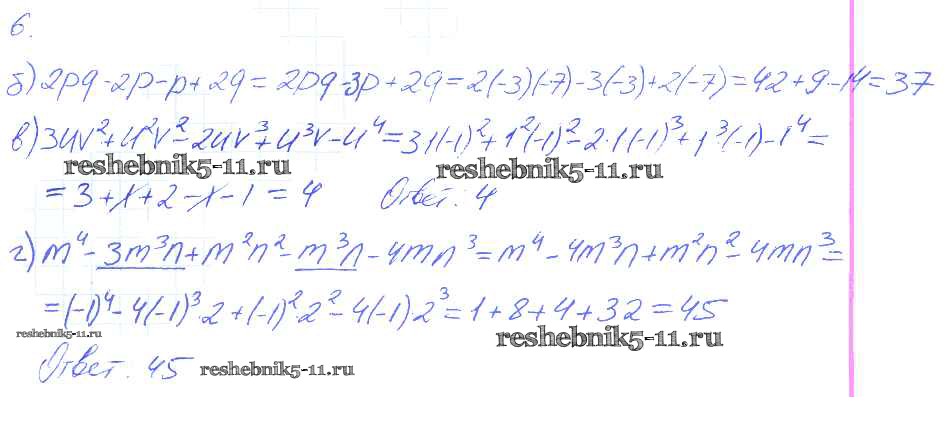 6.
б) 2pq - 2p - p + 2q = 2pq - 3p + 2q = 2(-3)(-7) - 3(-3) + 2(-7) = 42 + 9 - 14 = 37
в) 3uv² + u²v² - 2uv³ + u³v - u⁴ = 3·1(-1)² + 1²(-1)² - 2·1(-1)³ + 1³(-1) - 1⁴ =
reshebnik5-11.ru reshebnik5-11.ru
= 3 + 1 + 2 - 1 - 1 = 4 Ответ: 4
г) m⁴ - 3m³n + m²n² - m³n - 4mn³ = m⁴ - 4m³n + m²n² - 4mn³ =
= (-1)⁴ - 4(-1)³·2 + (-1)²·2² - 4(-1)·2³ = 1 + 8 + 4 + 32 = 45
reshebnik5-11.ru reshebnik5-11.ru
Ответ: 45 reshebnik5-11.ru